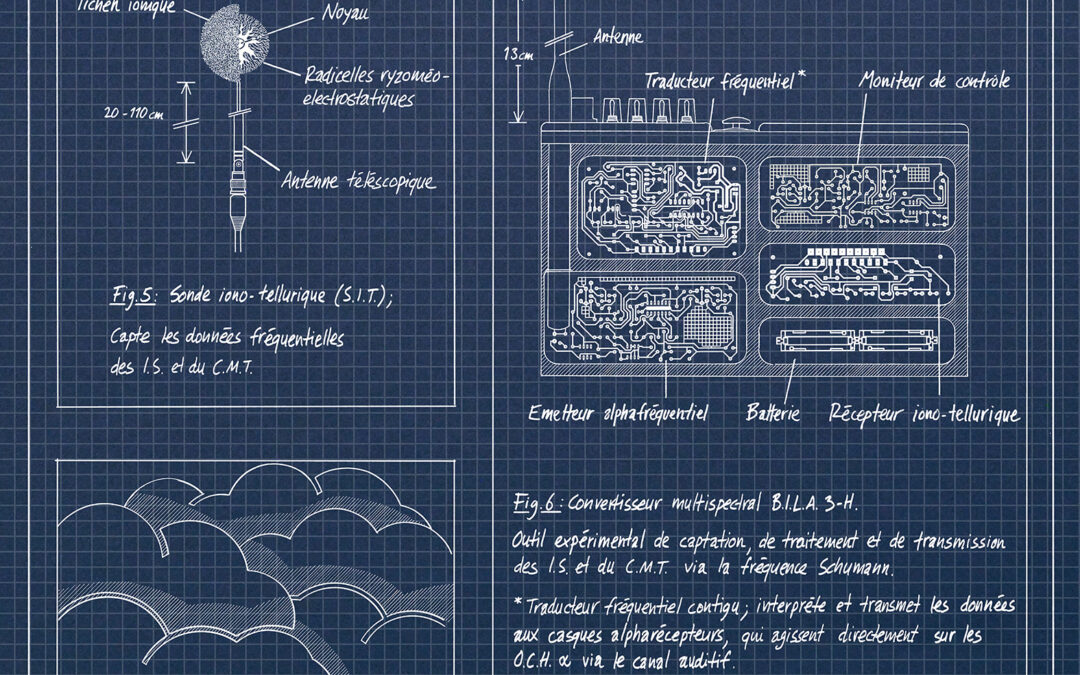 lichen ionique
Noyau
Radicelles ryzoméo-
electrostatiques
20 - 110 cm
Antenne téléscopique
Fig.5: Sonde iono-tellurique (S.I.T.);
Capte les données fréquentielles
des I.S. et du C.M.T.
13 cm
Antenne
Traducteur fréquentiel*
Moniteur de contrôle
Emetteur alphafréquentiel
Batterie
Récepteur iono-tellurique
Fig.6: Convertisseur multispectral B.I.L.A. 3-H.
Outil expérimental de captation, de traitement et de transmission
des I.S. et du C.M.T. via la fréquence Schumann.
* Traducteur fréquentiel contigu; interprète et transmet les données
aux casques alpharécepteurs, qui agissent directement sur les
O.C.H. ∝ via le canal auditif.